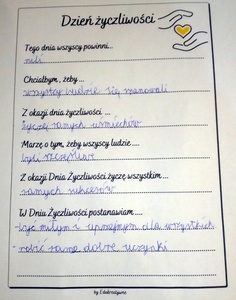 Dzień życzliwości
Tego dnia wszyscy powinni...
mili
Chciałbym, żeby...
wszyscy ludzie się szanowali
Z okazji dnia życzliwości ...
życzę samych uśmiechów
Marzę o tym, żeby wszyscy ludzie....
byli szczęśliwi
Z okazji Dnia Życzliwości życzę wszystkim ...
samych sukcesów
W Dniu Życzliwości postanawiam....
być miłym i uprzejmym dla wszystkich
robić same dobre uczynki